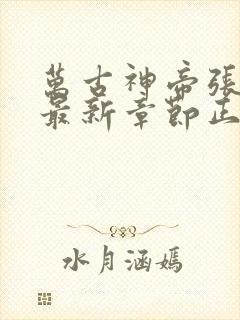 萬古神帝張
最新章節正
水月涵嫣